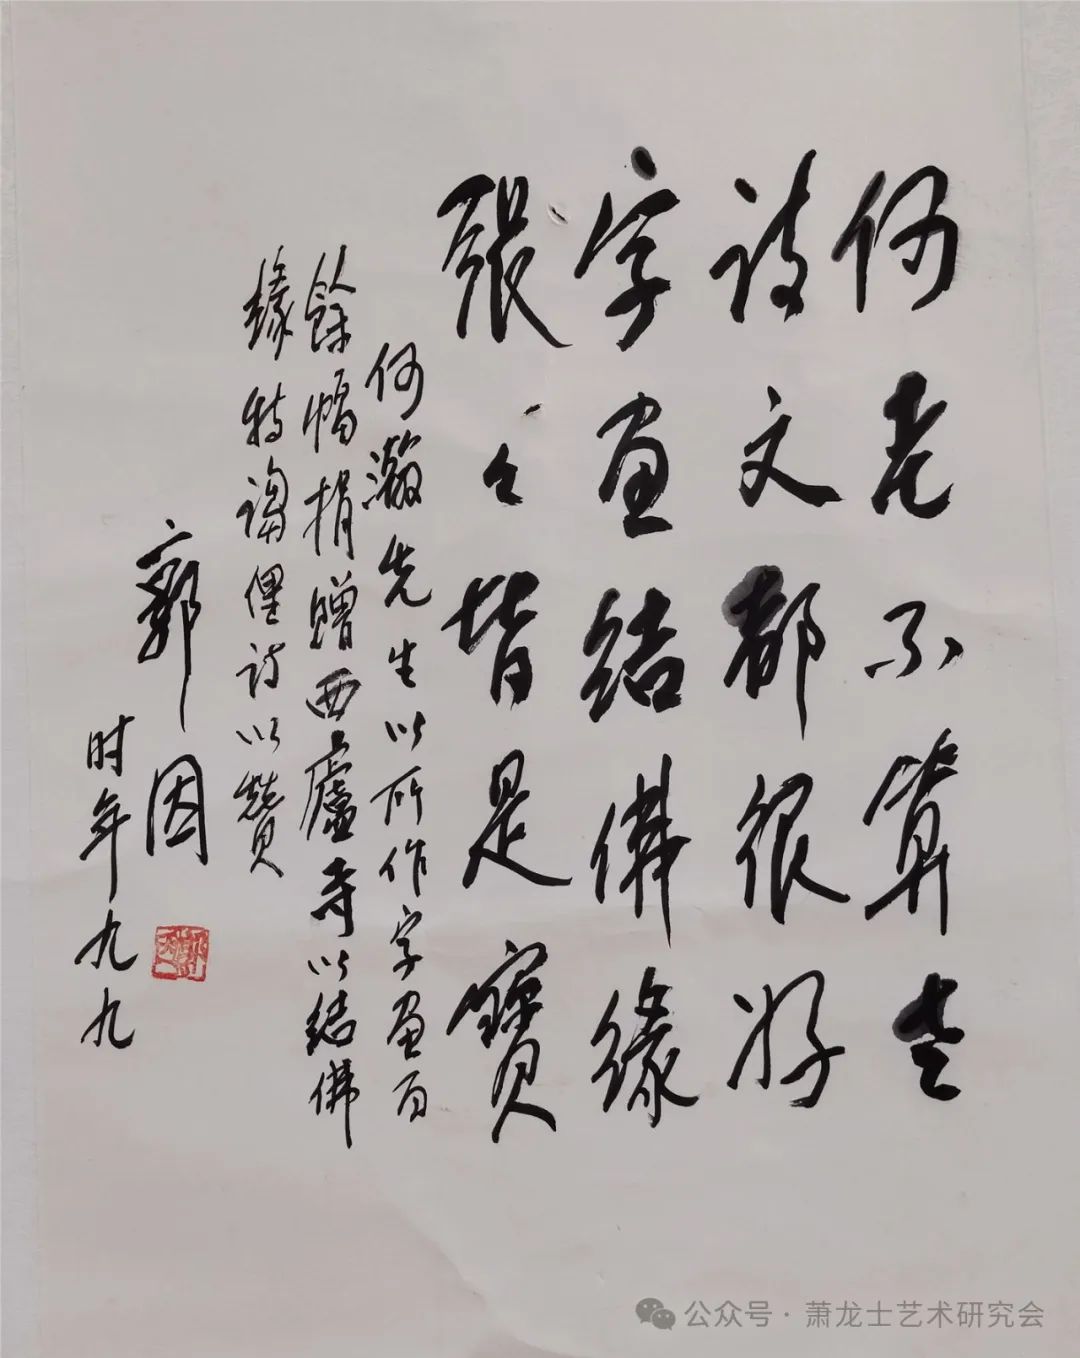 何老不算老
诗文都很好
字画结佛缘
張々皆是寶
何先生以所作字画百
餘幅捐贈西廬寺以结佛
缘特謅俚诗以赞
郭因
时年九九
公众号·萧龙士艺术研究会